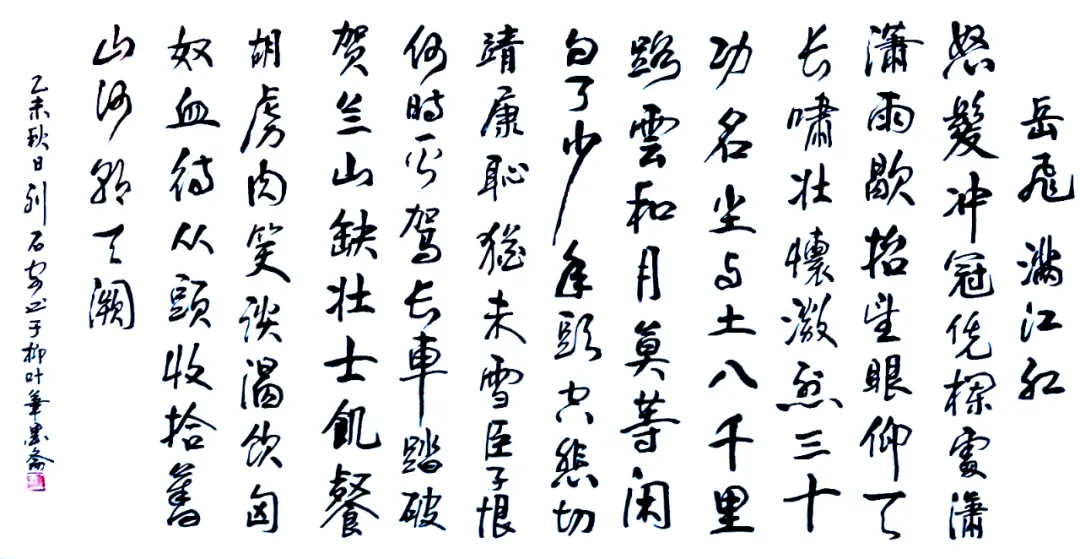 岳飛 满江红
怒髮冲冠凭栏處瀟
瀟雨歇抬望眼仰天
长嘯壮懷激烈三十
功名尘与土八千里
路雲和月莫等闲
白了少年頭空悲切
靖康恥猶未雪臣子恨
何時駕长車踏破
贺兰山缺壮士飢餐
胡虏肉笑谈渴饮匈
奴血待从頭收拾舊
山河朝天阙
乙未秋日刘石安书于柳叶墨斋